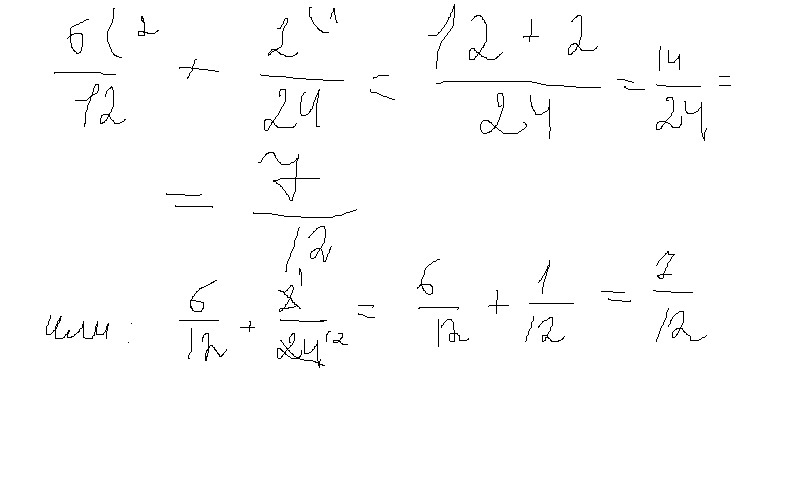 6(2/12 + 2(1/24 = 12+2/24 = 14/24 =
= 7/12
или: 6/12 + 2 1/24 12 = 6/12 + 1/12 = 7/12